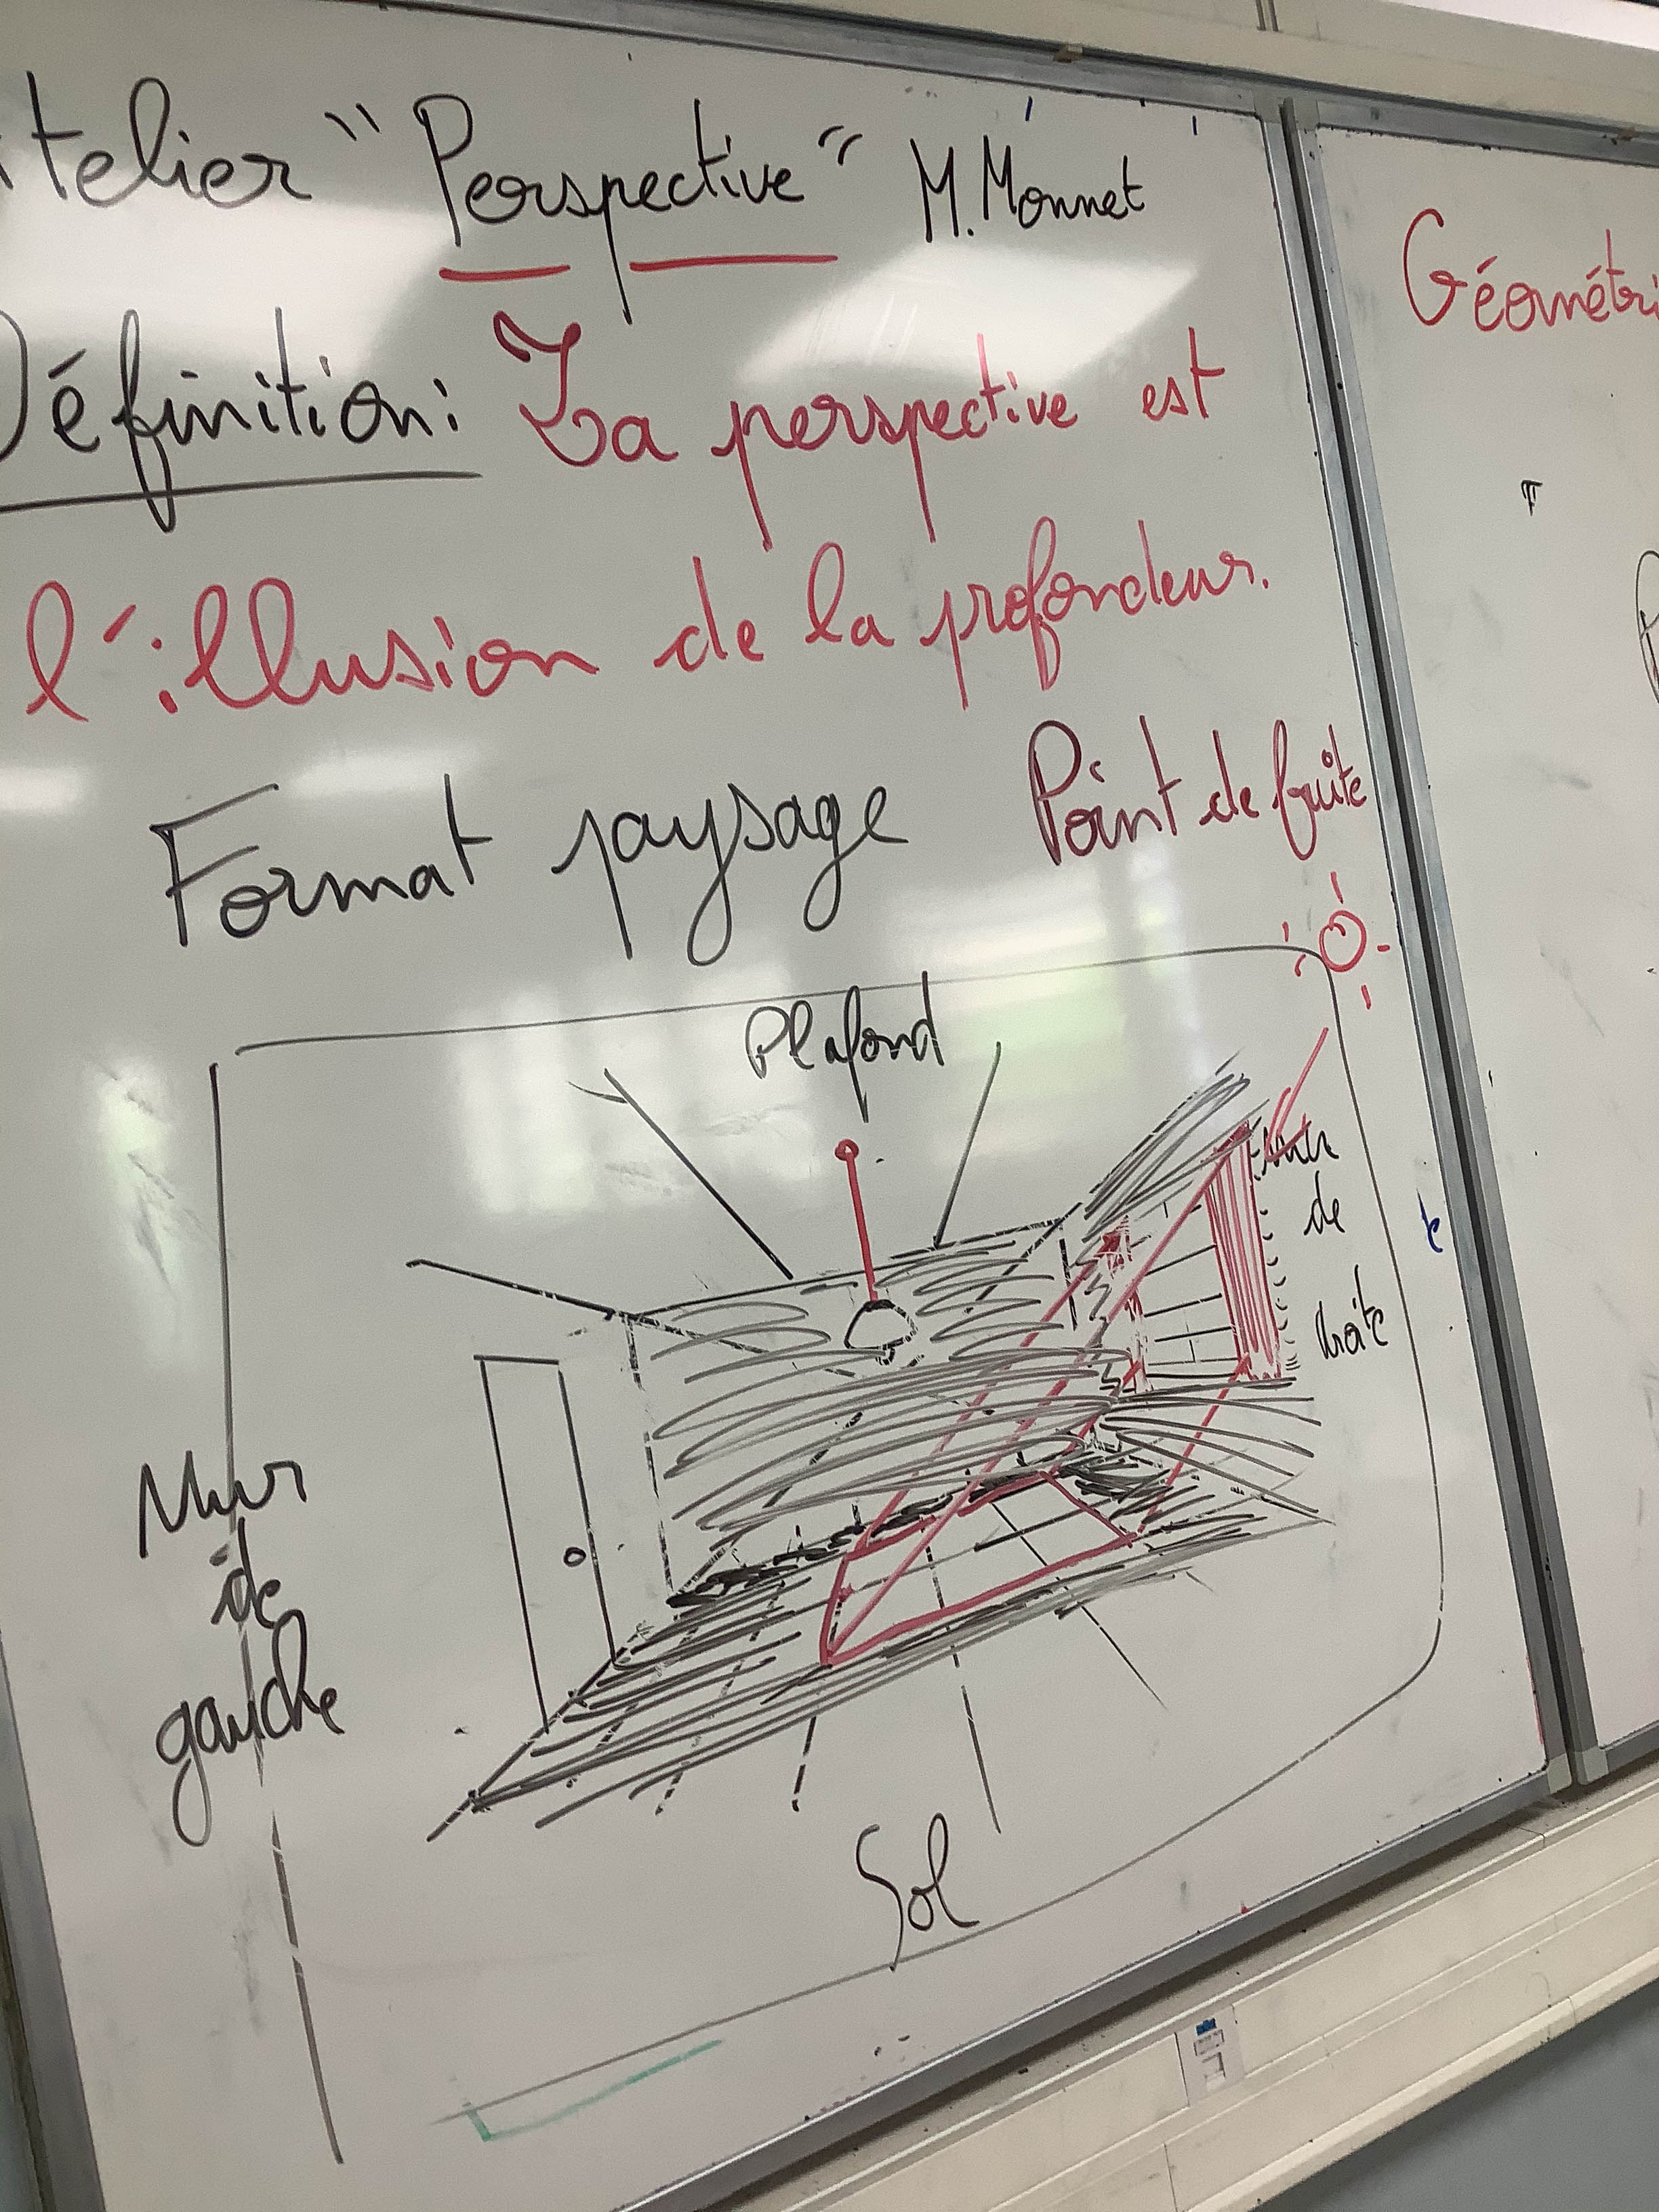 telier "Perspective" M. Monnet
Définition: La perspective est
l'illusion de la profondeur.
Format paysage
Point de fuite
Plafond
Mur
de
droite
Mur
de
gauche
Sol
Géométri